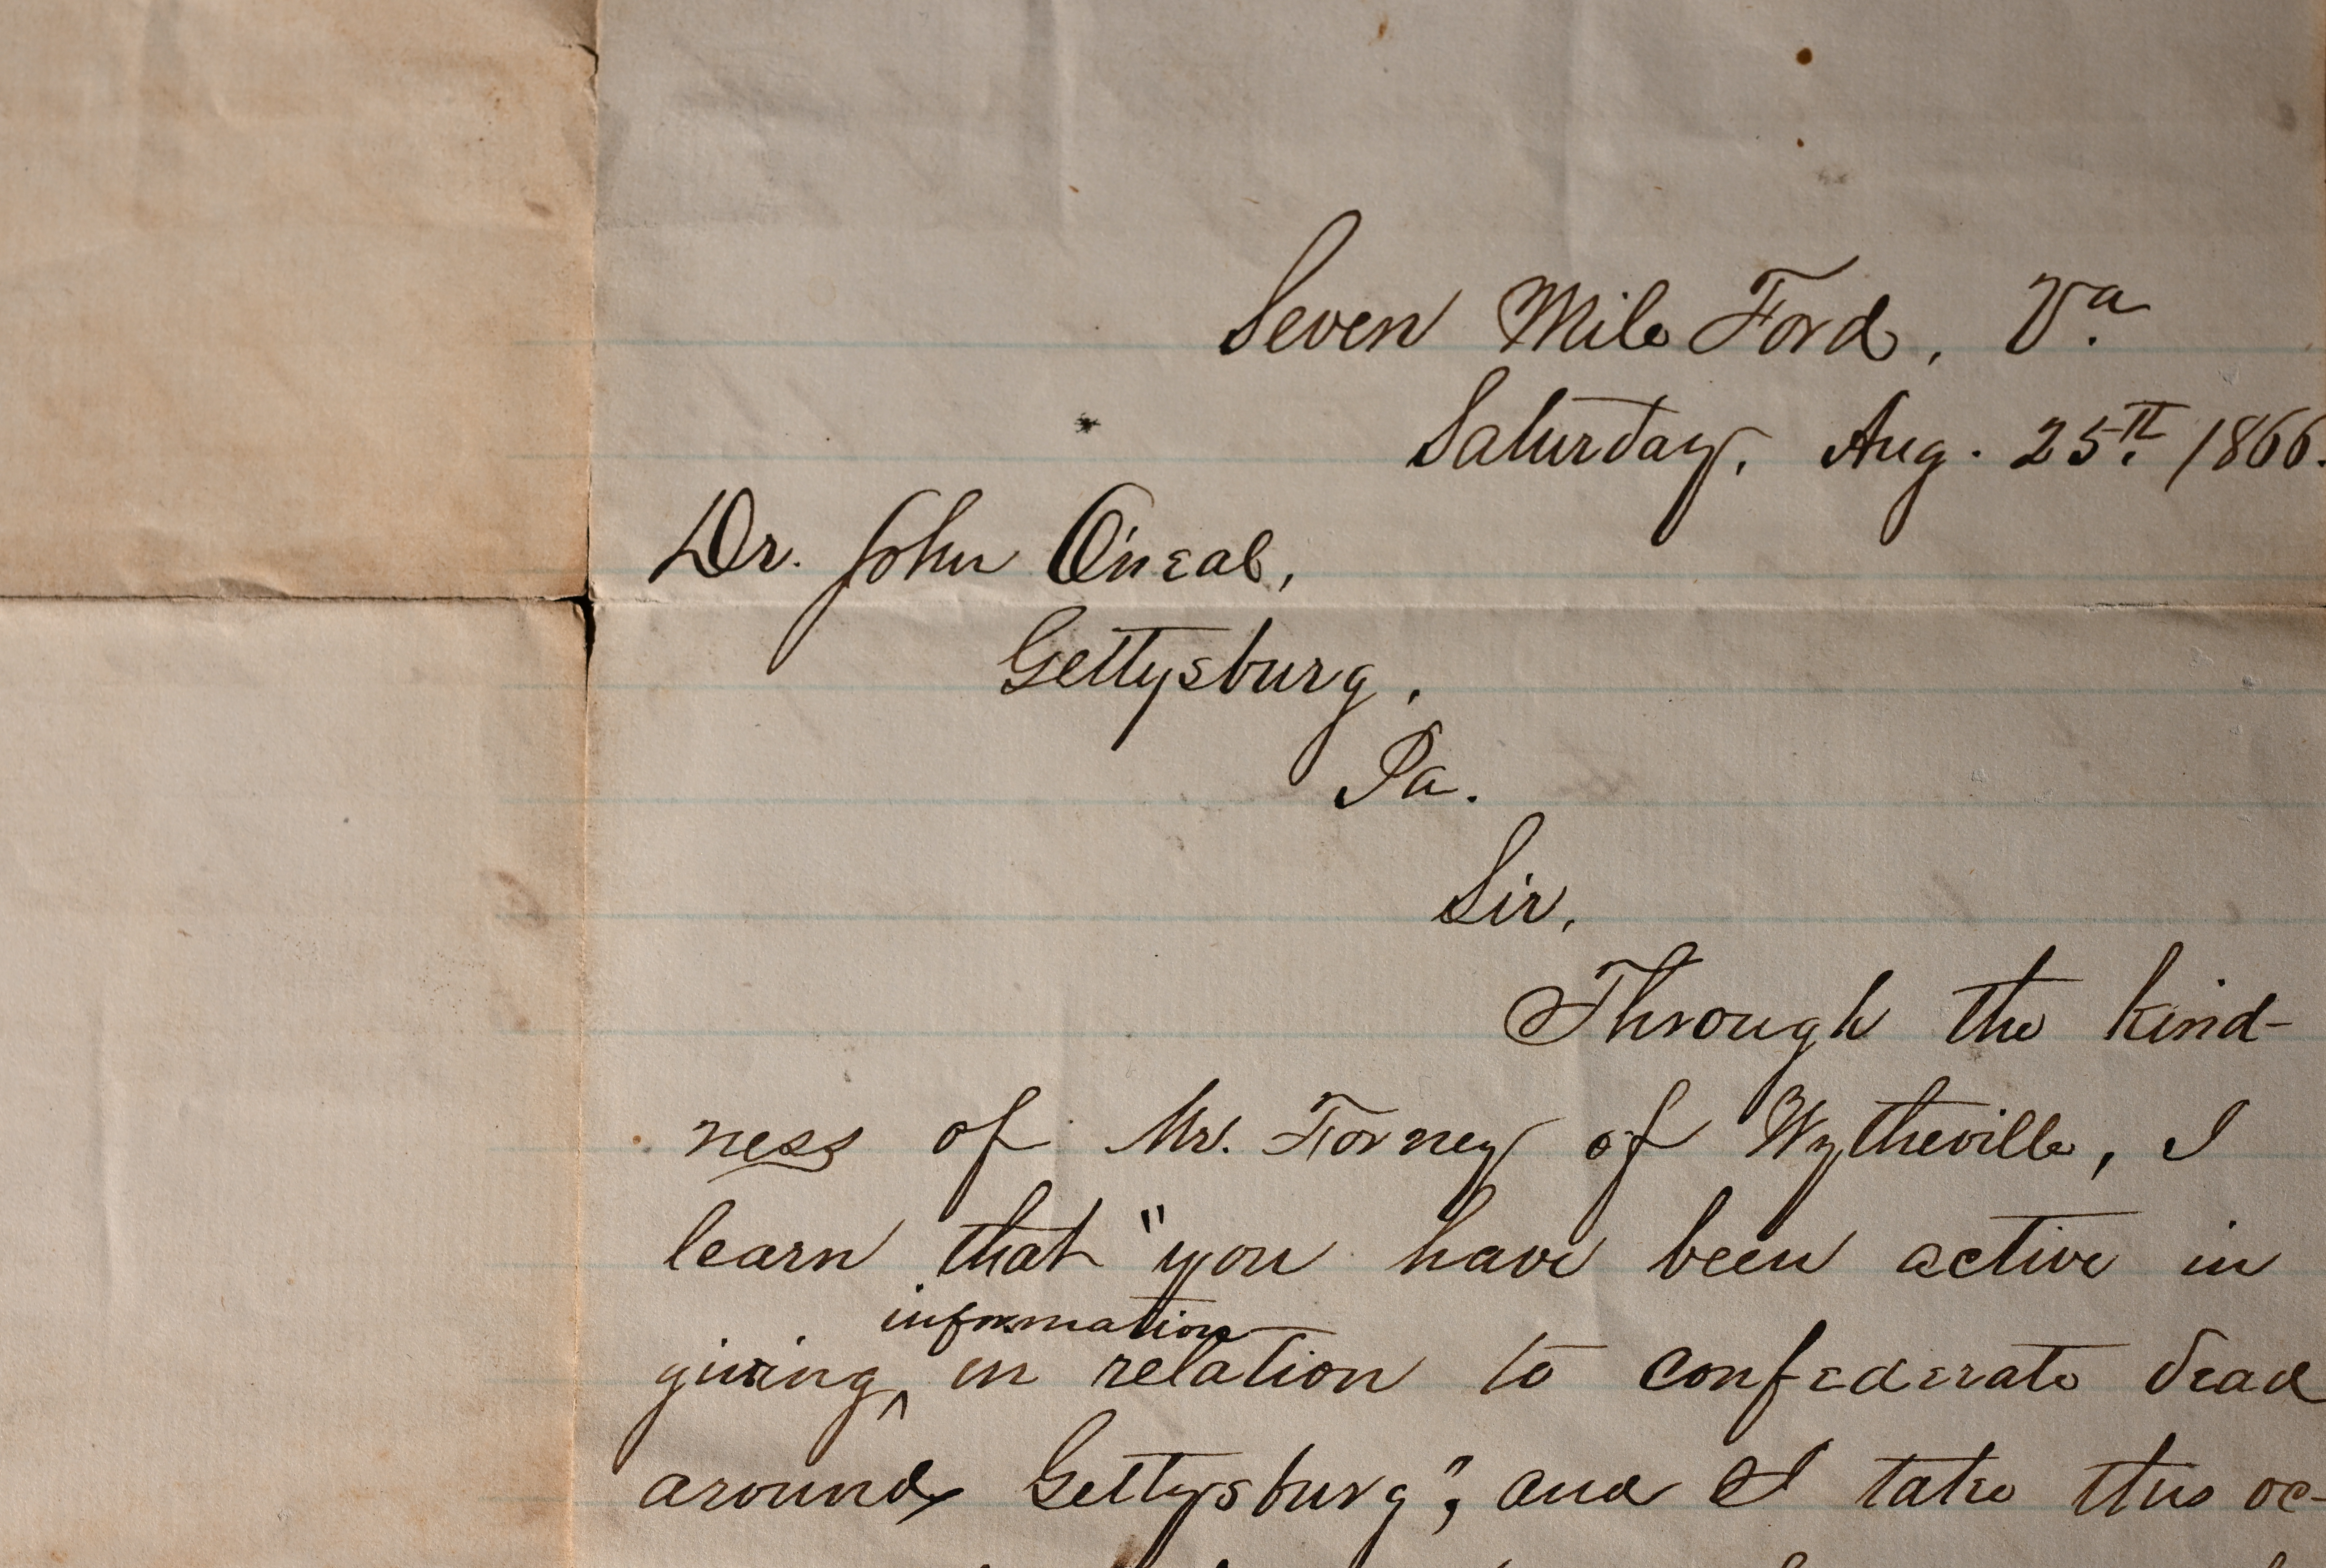 Seven Mile Ford, Va.
Saturday, Aug. 25th 1866.
Dr. John O'neal,
Gettysburg,
Pa.
Sir,
Through the kind-
ness of Mr. Forney of Wytheville, I
learn that "you have been active in
information
giving ^ in relation to confederate dead
around Gettysburg", and I take this oc-